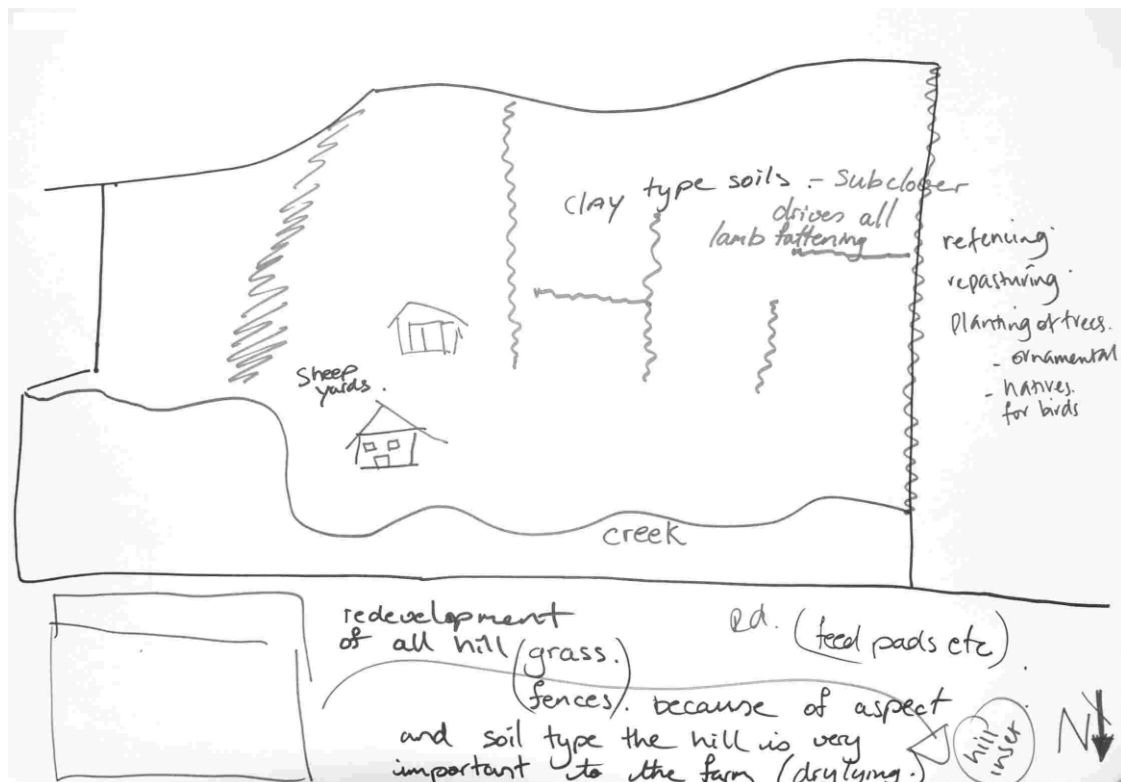 clay type soils - Subclover
drives all
lamb fattening
refencing
repasturing
planting of trees.
- ornamental
- natives.
for birds
Sheep
yards.
creek
redevelopment
of all hill (grass.
fences). because of aspect
and soil type the hill is very
important to the farm (drylying.)
Rd. (feed pads etc).
hill
inset
N